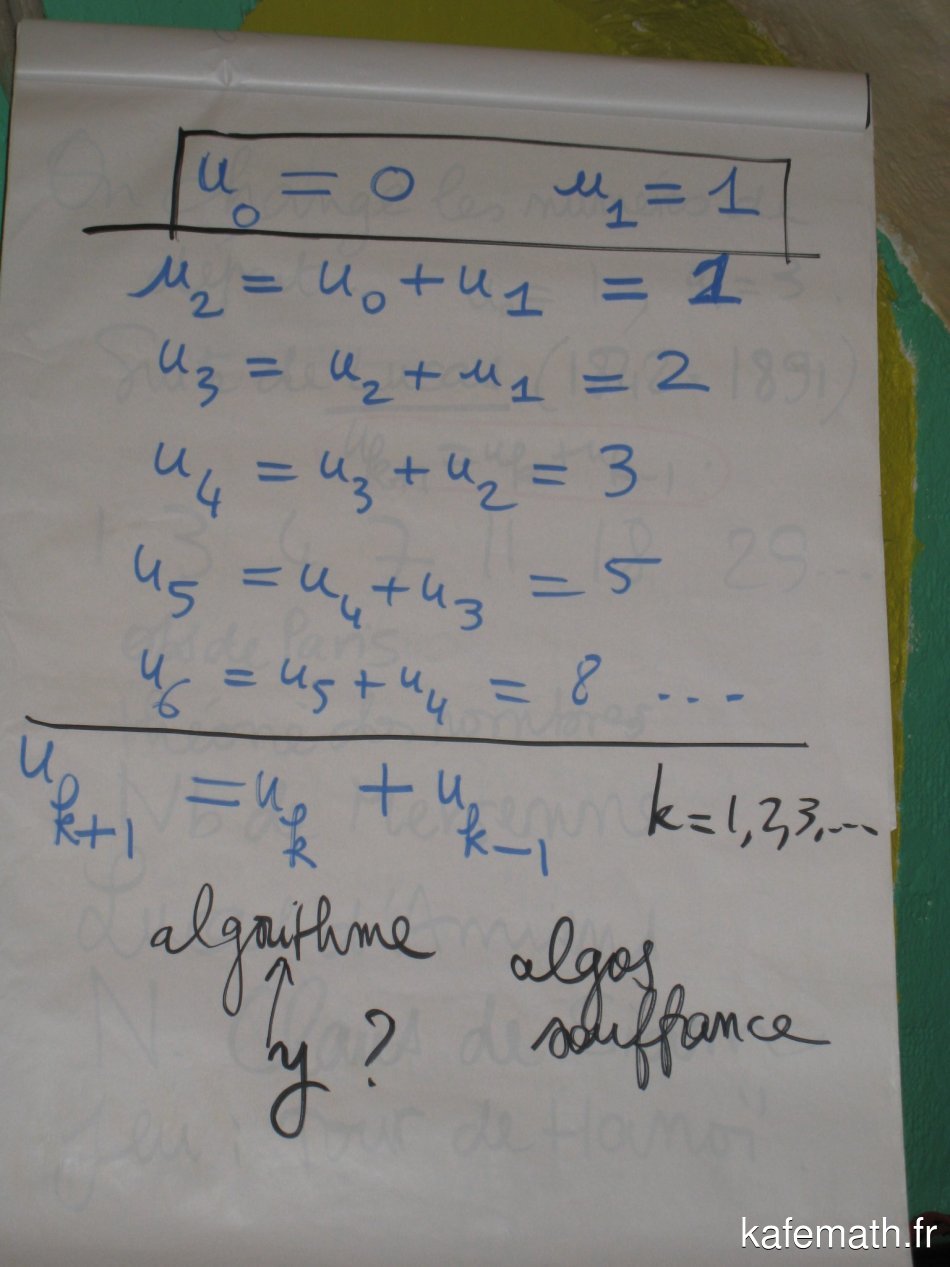 u₀ = 0 u₁ = 1
u₂ = u₀ + u₁ = 1
u₃ = u₂ + u₁ = 2
u₄ = u₃ + u₂ = 3
u₅ = u₄ + u₃ = 5
u₆ = u₅ + u₄ = 8 ...
uₖ₊₁ = uₖ + uₖ₋₁ k = 1, 2, 3, ...
algorithme algos
y ? souffrance
kafemath.fr